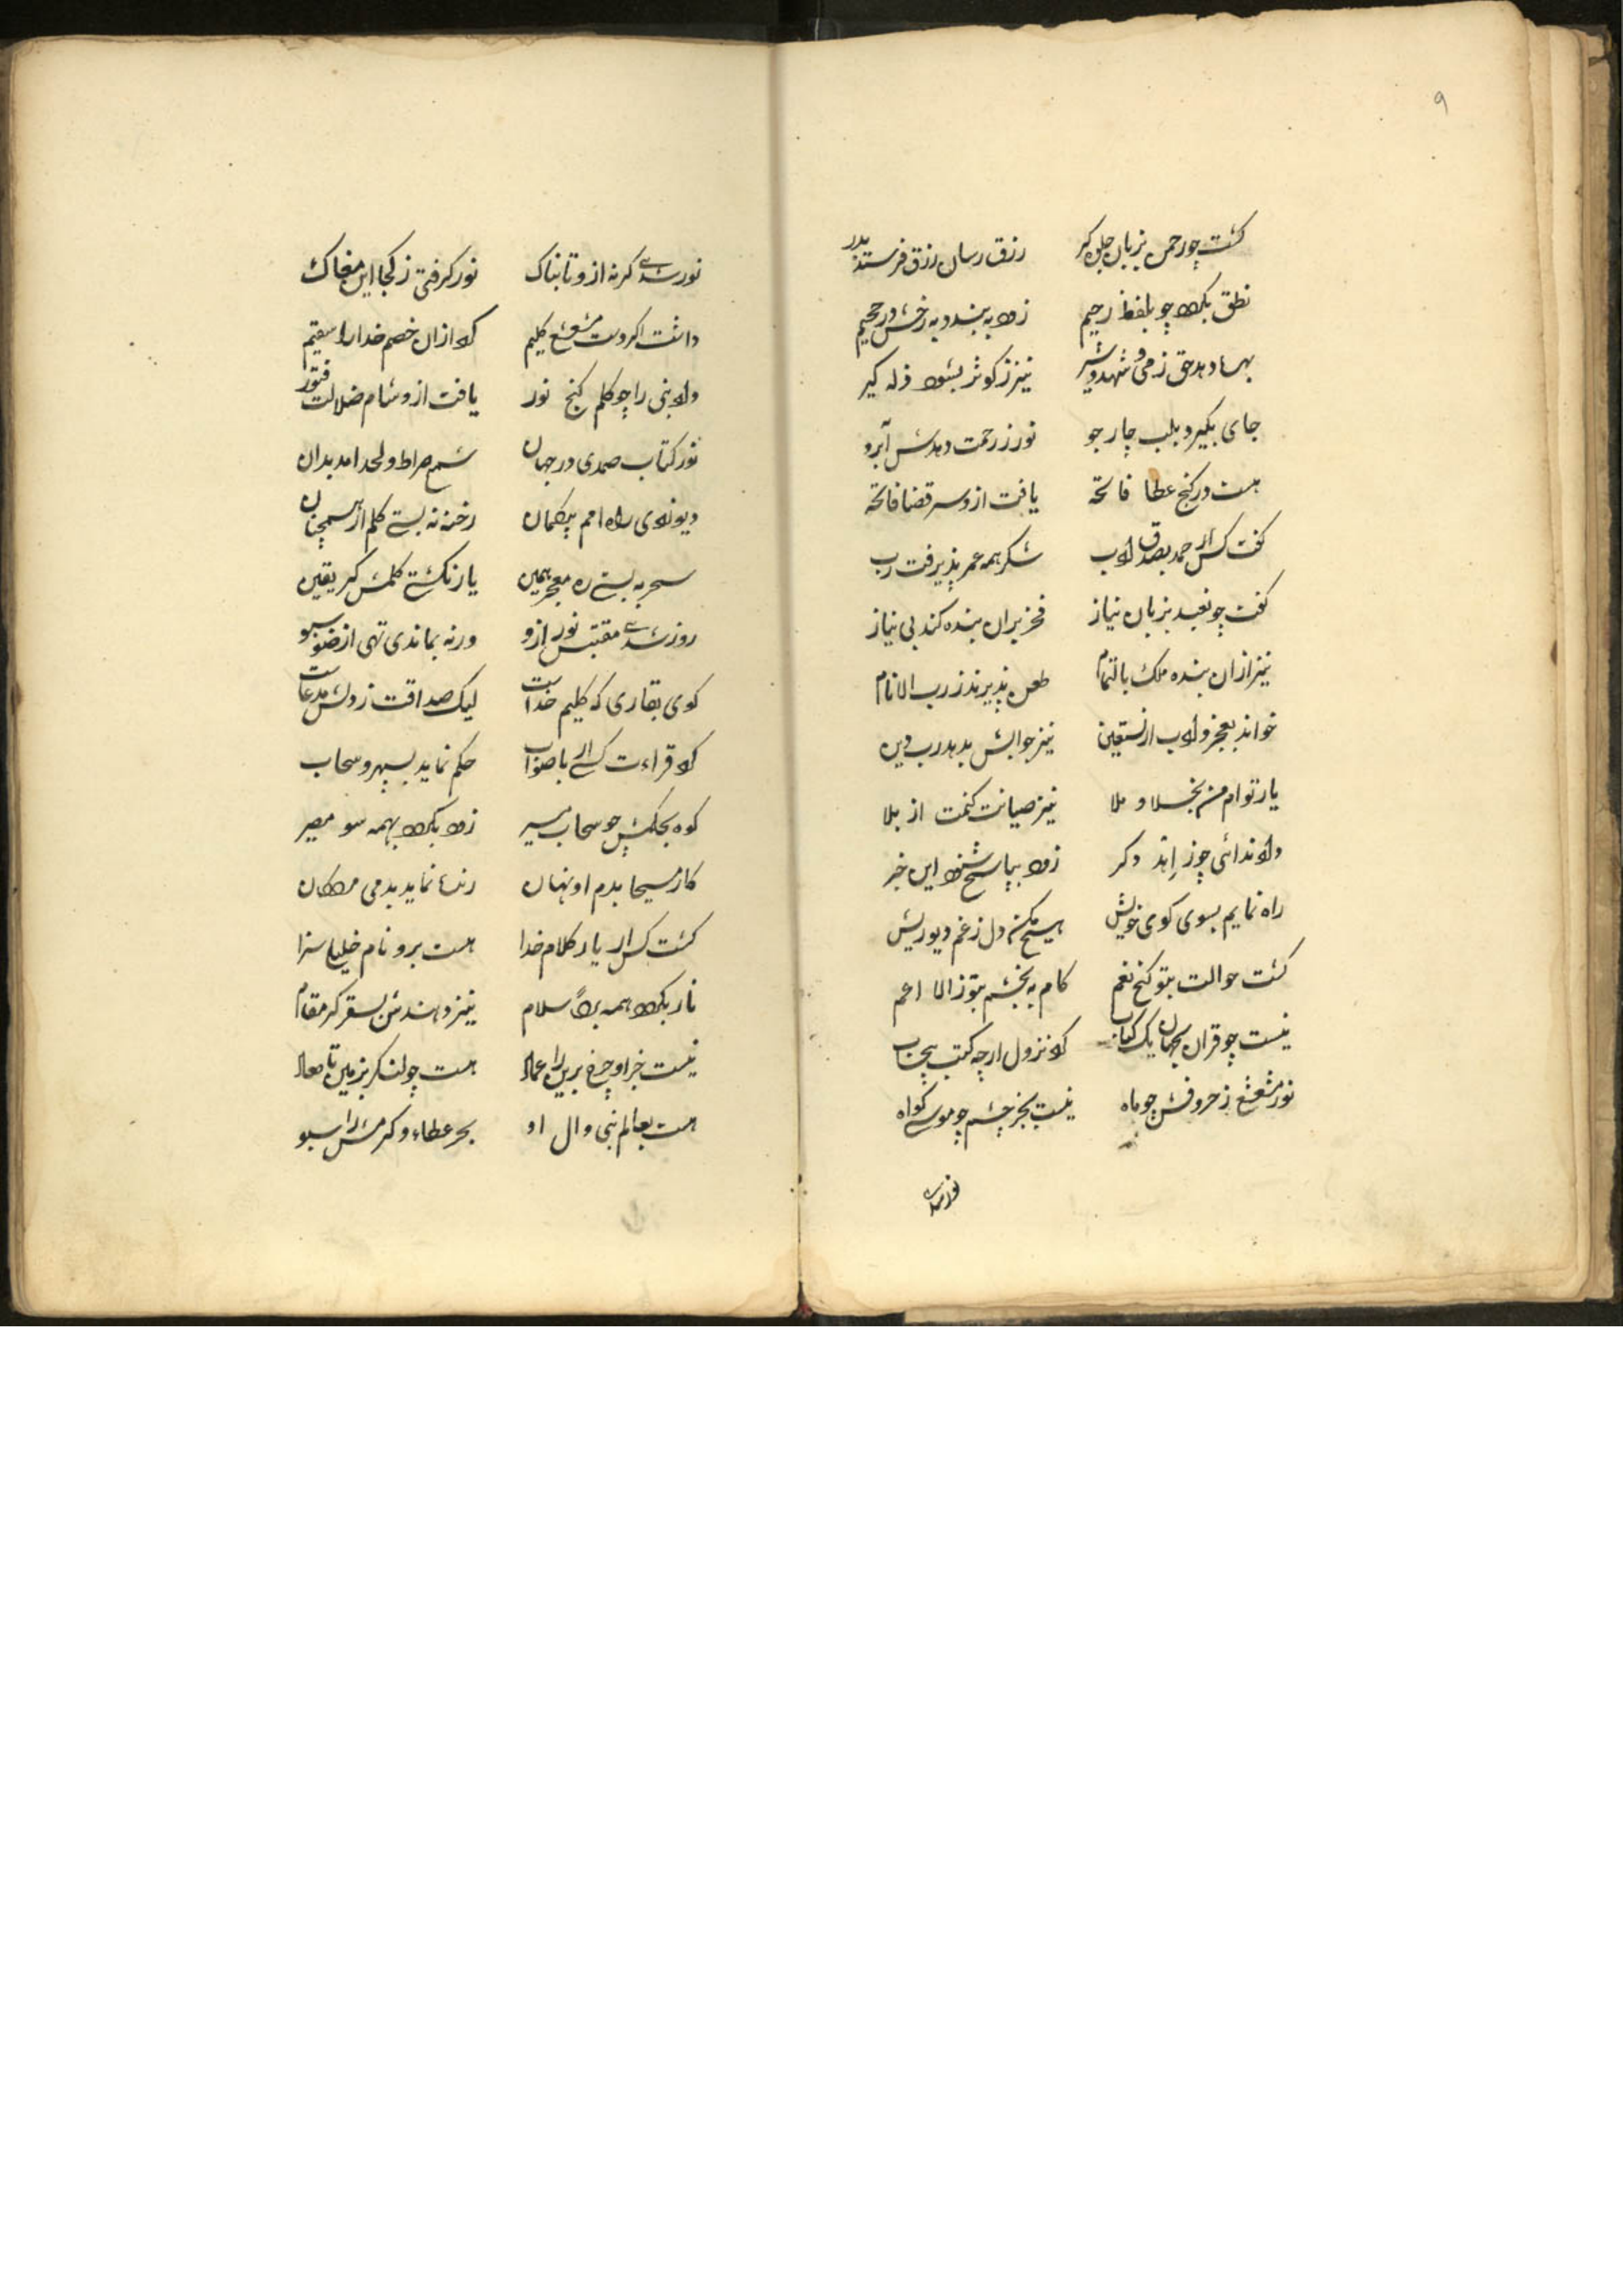 ۹
کشت چو رحمن بزبان جلوه کر رزق رسان رزق فرستد بدر
نطق بکرد چو بلفظ رحیم زود به بندد به رخش در جحیم
بهر دهد حق ز می و شهد و شیر نیز ز کوثر بشود زله کیر
جای بکیرد بلب چار جو نور ز رحمت دهدش آبرو
هست در کنج عطا فاتحه یافت ازو سر قضا فاتحه
کفت کس ار حمد بصدق ادب شکر همه عمر پذیرفت رب
کفت چو نعبد بزبان نیاز فخر بران بنده کند بی نیاز
نیز ازان بنده ملک بالتمام پذیرند ز رب الانام
خواند بعجز و ادب ار نستعین نیز جوابش بدهد رب دین
یار توام من بخلا و ملا نیز صیانت کنمت از بلا
داد ندائی چو ز اهد دکر زود بپاسخ شنود این خبر
راه نمایم بسوی کوی خویش هیچ مکن دل ز غم دیو ریش
کشت حوالت بتو کنج نعم کام به بخشم بتو ز الا اعم
نیست چو قران بجهان یک کتاب کرد نزول ارچه کتب بیحساب
نور مشعشع ز حروفش چو ماه نیست بجز چشم چو موسی کواه
نور شدی
نور شدی کر نه ازو تابناک نور کرفتی ز کجا این مغاک
داشت اکر دست مشعشع کلیم کرد ازان خصم خدا را سقیم
داد نبی را چو کلم کنج نور یافت ازو شام ضلالت فتور
نور کتاب صمدی در جهان شمع صراط و لحد امد بدان
دیو زدی راه امم بیکمان رخنه نه بستی کلم ار همچنان
سحر به بستی ره معجز همین یار نکشتی کلمش کر یقین
روز شدی مقتبس نور ازو ورنه بماندی تهی از ضو سبو
کوی بقاری که کلیم خداست لیک صداقت ز دلش مدعاست
کرد قراءت کسی ار باصواب حکم نماید بسپهر و سحاب
کوه بحکمش چو سحاب مسیر زود بکردد بهمه سو مصیر
کار مسیحا بدم او نهان زنده نماید بدمی مردکان
کشت کس ار یار کلام خدا هست برو نام خلیلی سزا
نار بکردد همه بردا سلام نیز دهندش بسقر کر مقام
نیست جز او چرخ برین را عماد هست چو لنکر بزمین تا معاد
هست بعالم نبی و ال او بحر عطاء و کرمش را سبو